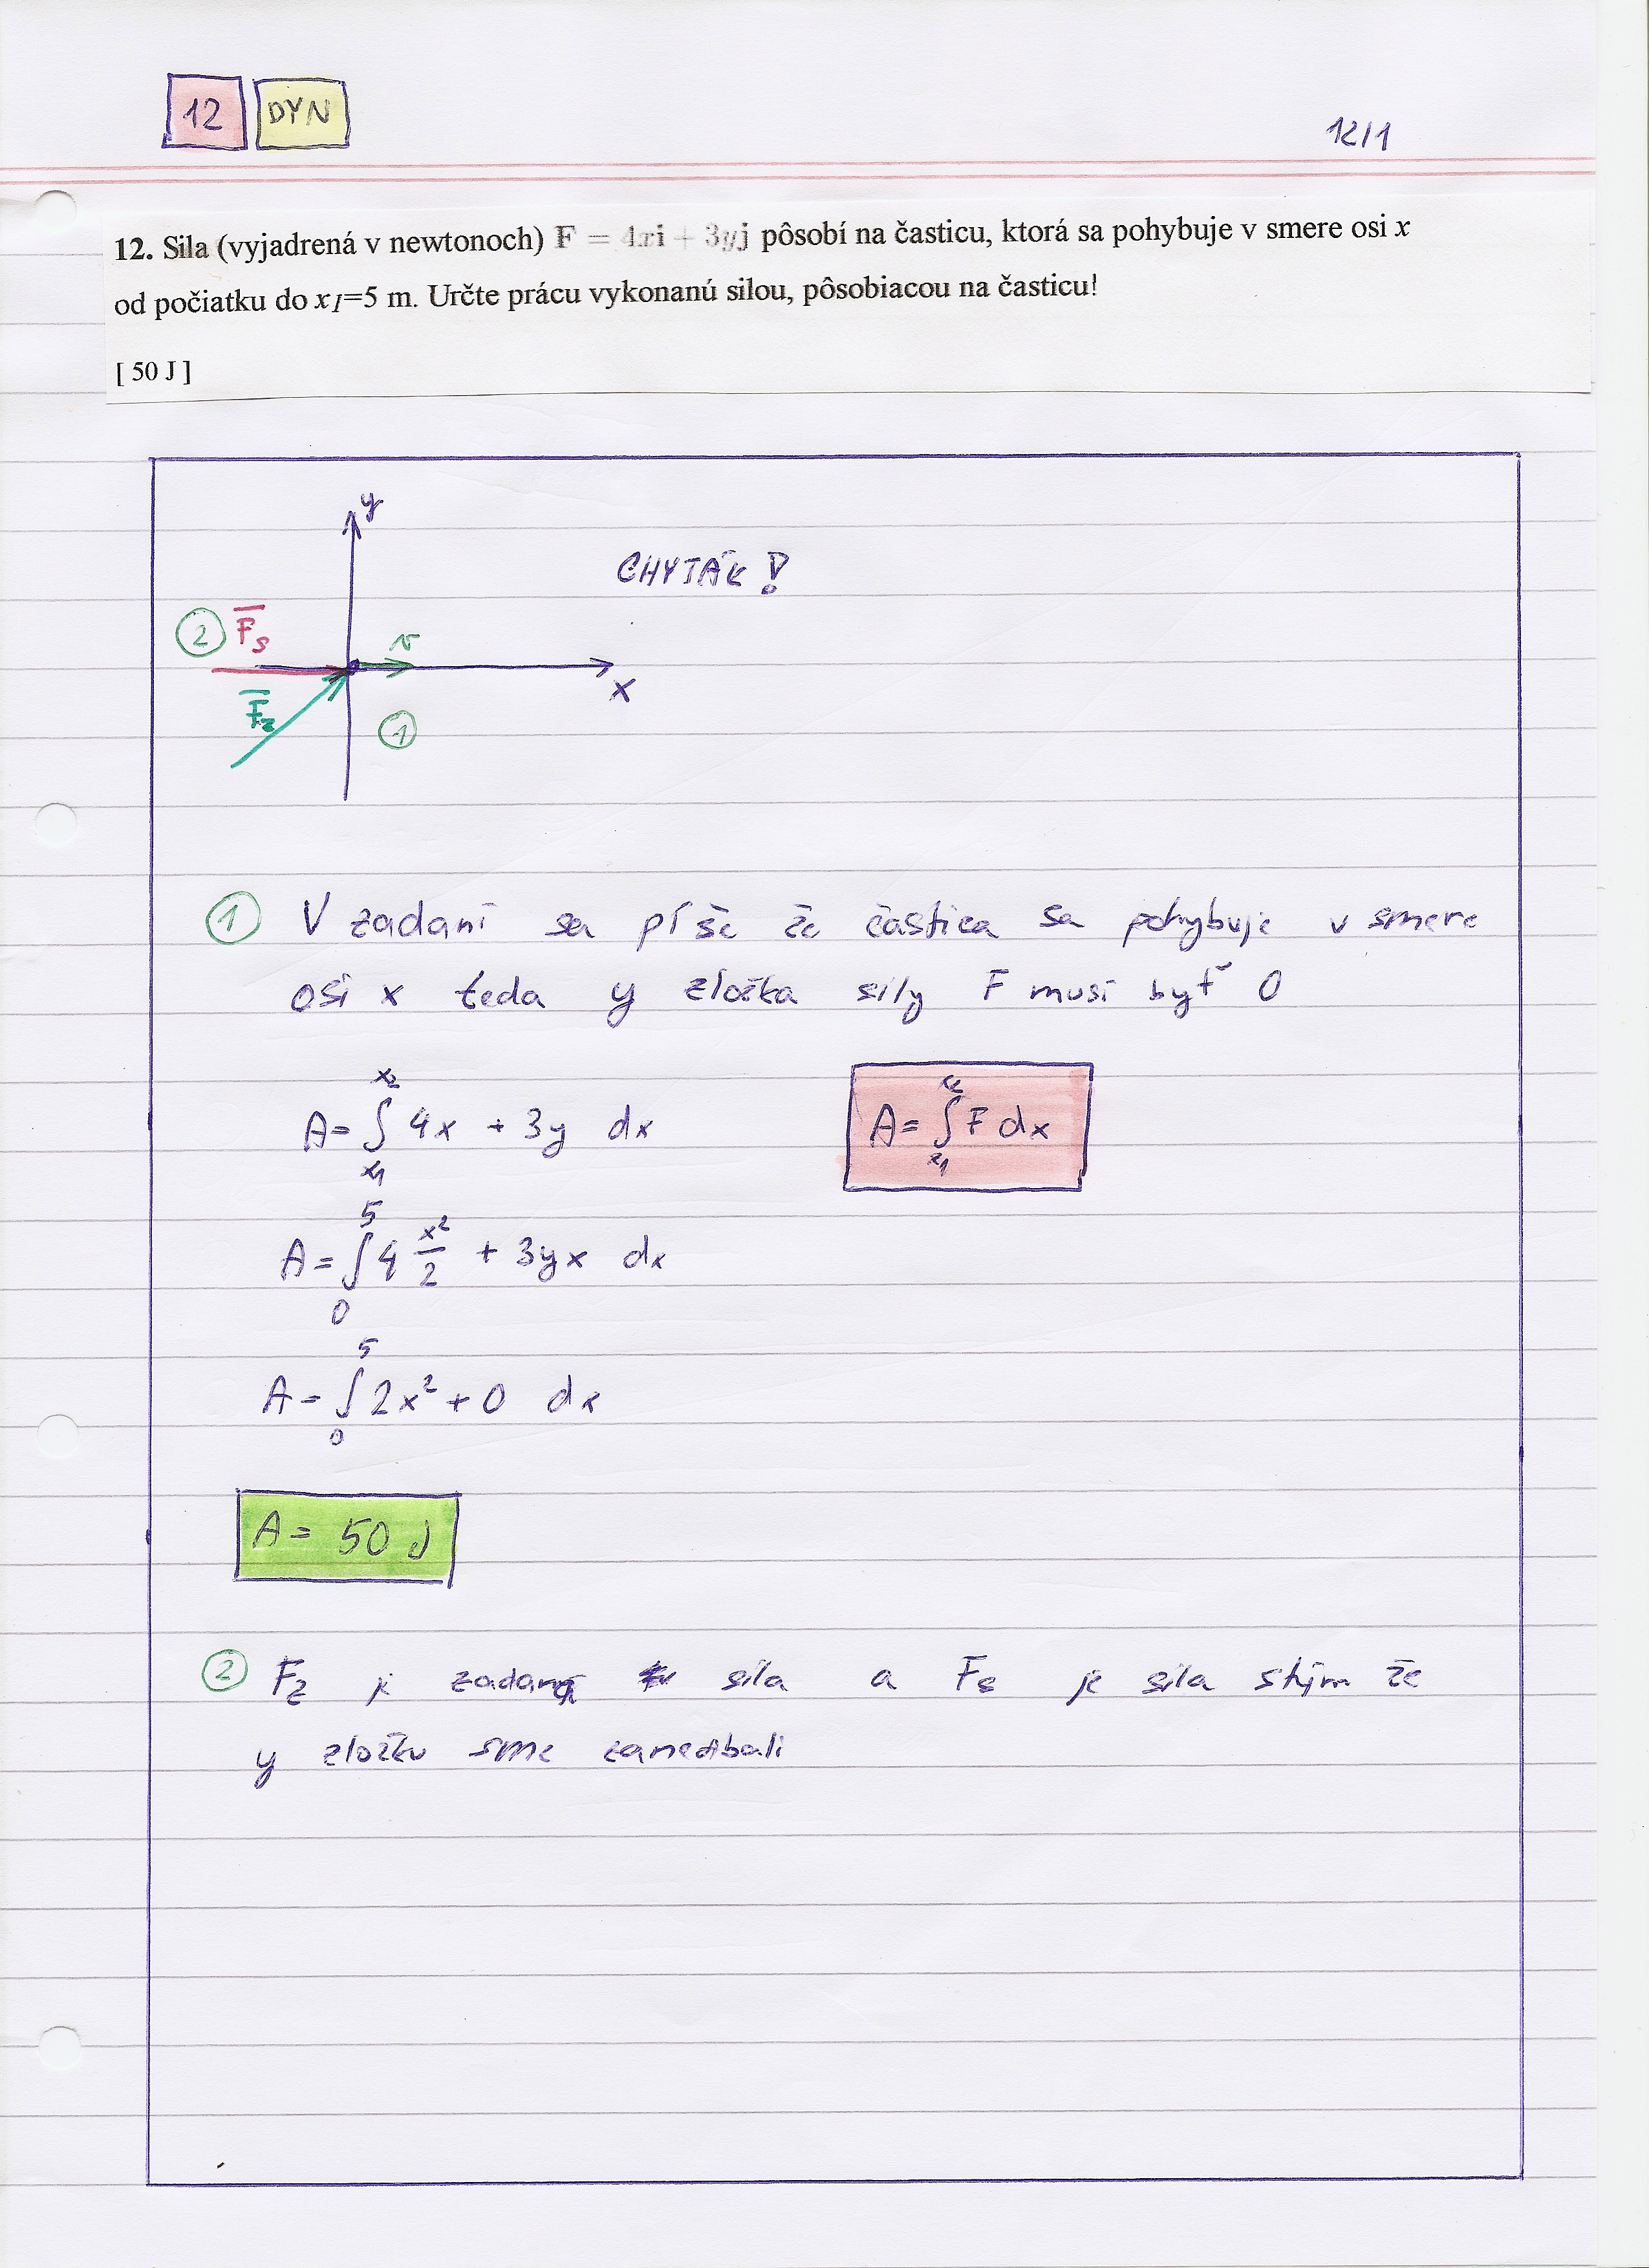 12 DYN
12/1
12. Sila (vyjadrená v newtonoch) F = 4xi + 3yj pôsobí na časticu, ktorá sa pohybuje v smere osi x
od počiatku do x1=5 m. Určte prácu vykonanú silou, pôsobiacou na časticu!
[ 50 J ]
y
CHYTÁK !
2 Fs v
x
Fz
1
1 V zadaní sa píše že častica sa pohybuje v smere
osi x teda y zložka sily F musí byť 0
A= ∫ x1 x2 4x + 3y dx
A= ∫ x1 x2 F dx
A= ∫ 0 5 4 x²/2 + 3yx dx
A= ∫ 0 5 2x² + 0 dx
A= 50 J
2 Fz je zadaná sila a Fs je sila stým že
y zložku sme zanedbali